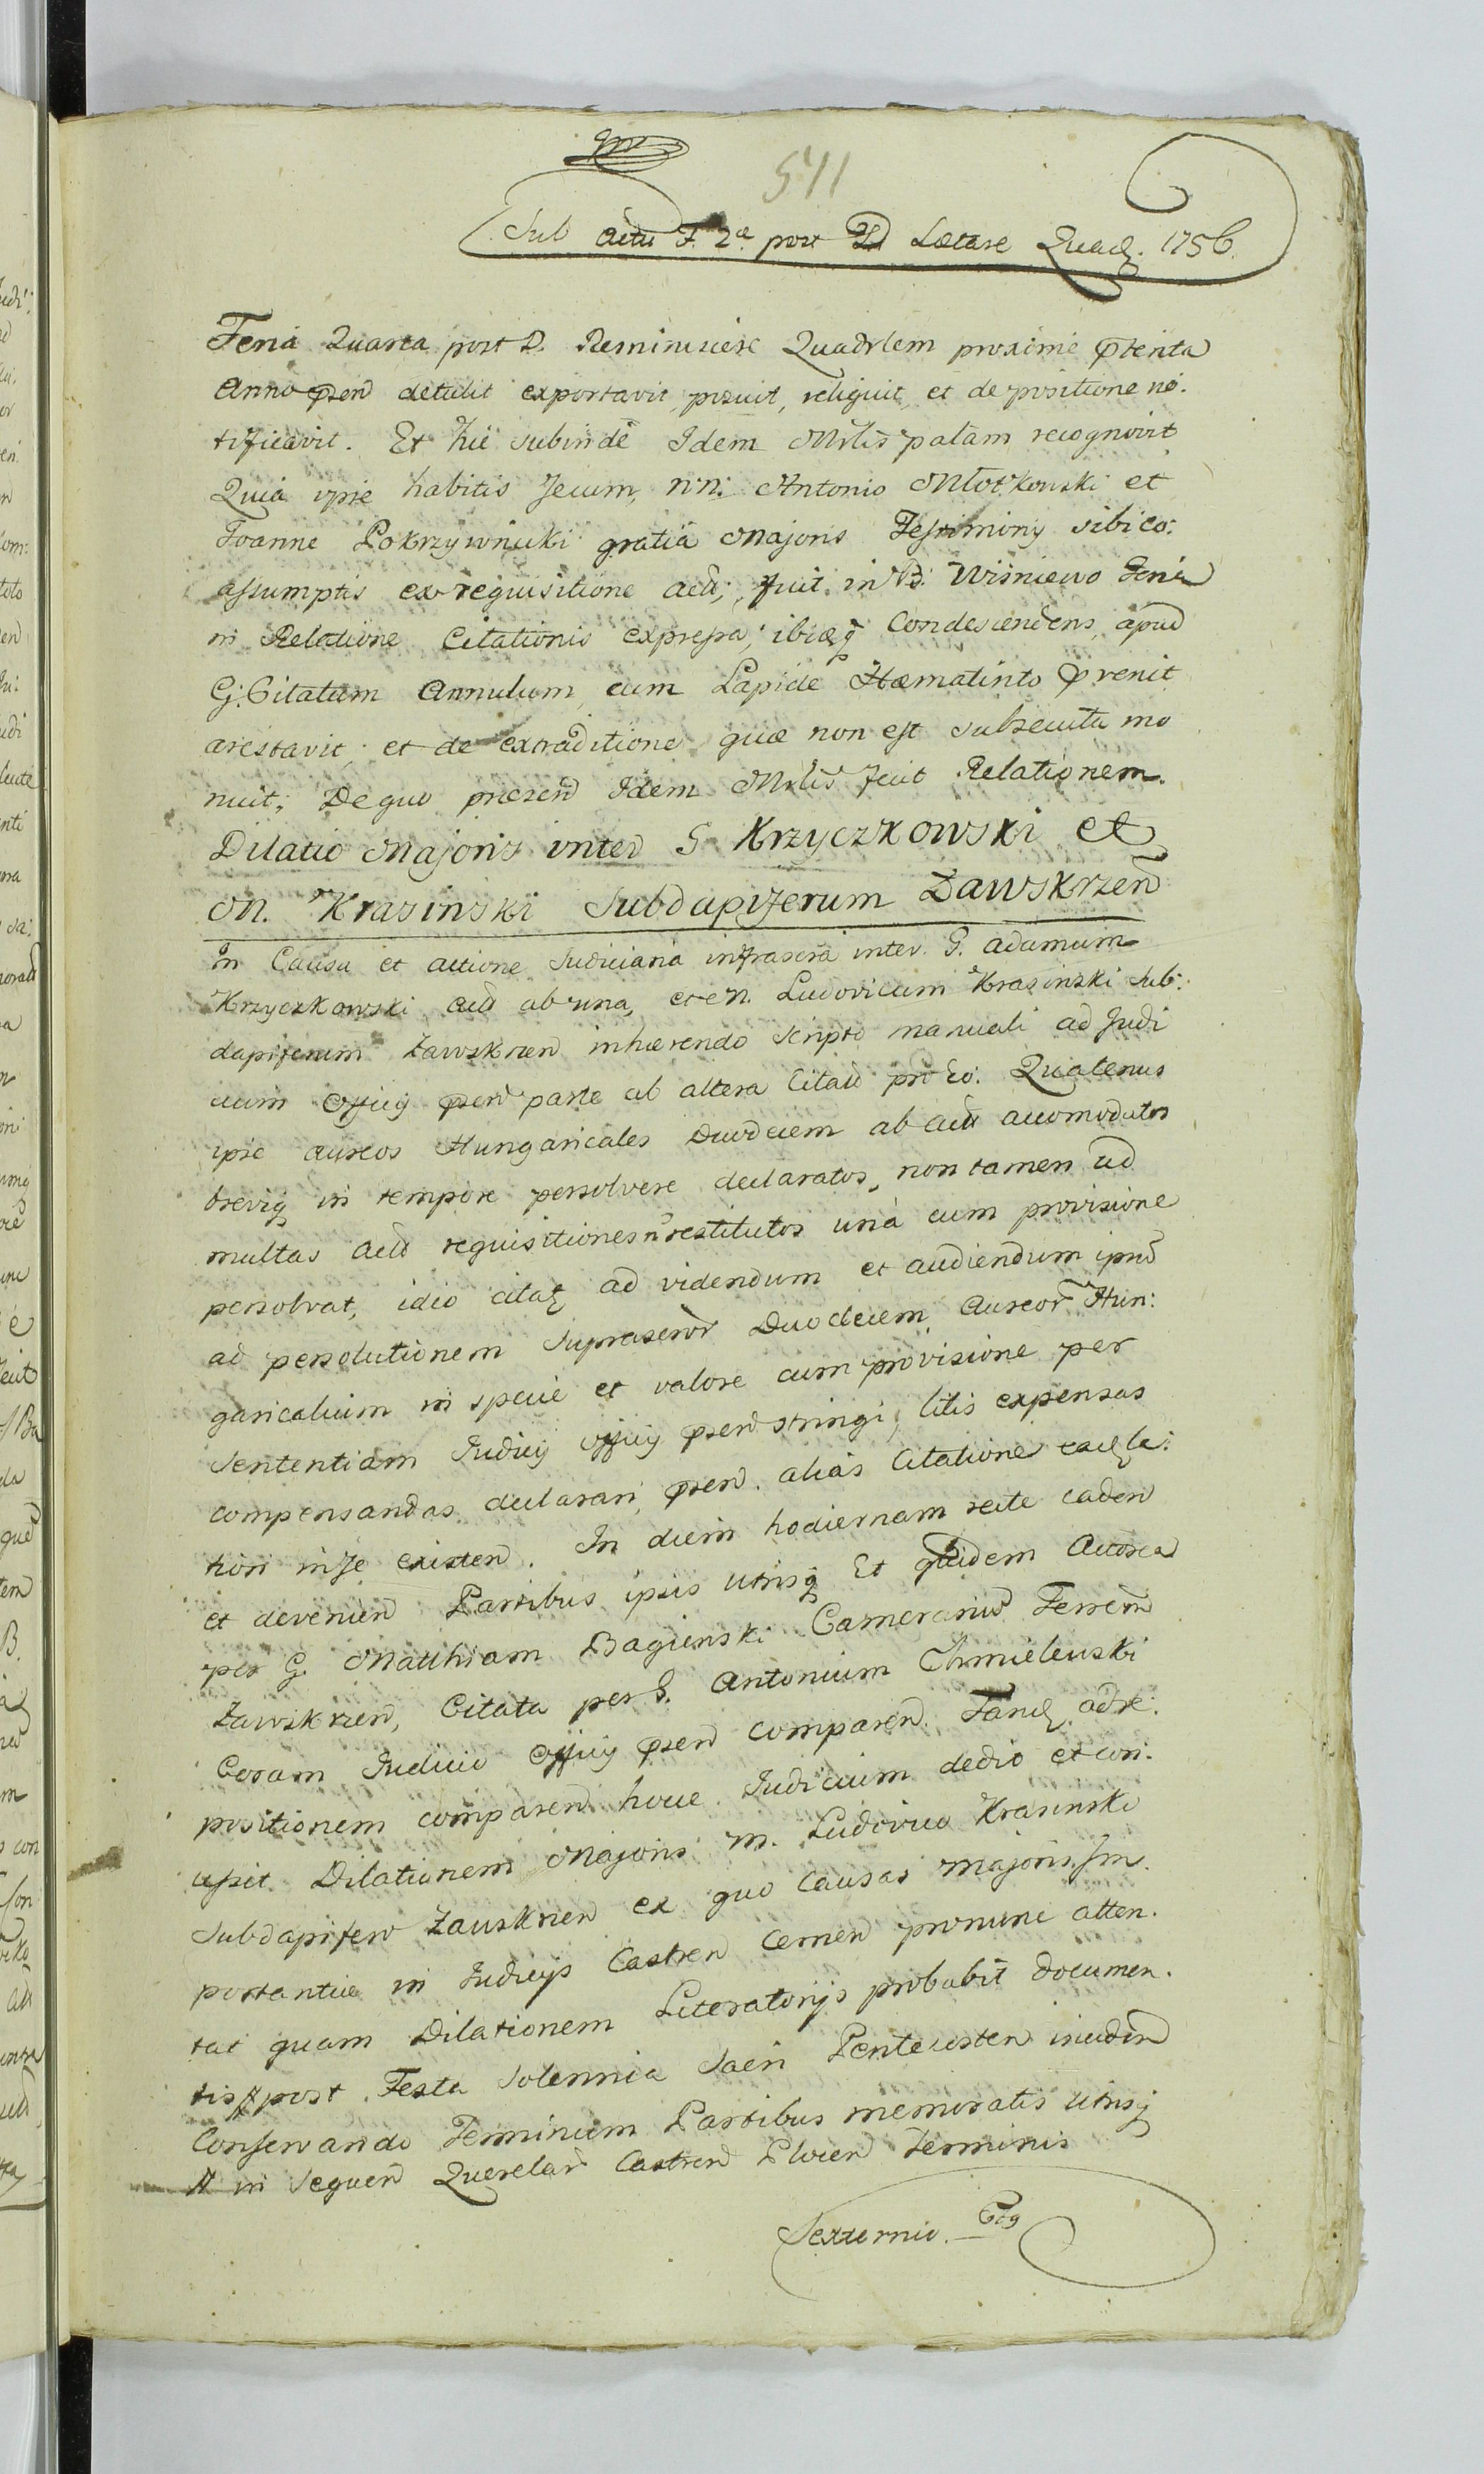 541
Sub Actu F. 2a post D Lætare Quadr. 1756.
Feria Quarta post D. Reminiscere Quadrlem proxime pterita
Anno psen detulit exportavit, posuit, reliquit, et de positione no:
tificavit. Et hic subinde Idem Mnlis palam recognovit
Quia ipse habitis secum, nn: Antonio Młotkowski et
Joanne Pokrzywnicki gratiâ Majoris Testimony sibi co:
assumptis ex requisitione Act; fuit in B: Wiśniewo Feria
in Relatione Citationis expressa; ibiq condescendens, apud
G: Citatum Annulum, cum Lapide Hæmatinto pvenit
arestavit; et de extraditione quæ non est subsecuta mo
nuit; De quo præsen Idem Mnlis fecit Relationem.
Dilatio Majoris inter G Krzyczkowski et
M. Krasinski Subdapiferum Zawskrzen
In Causa et actione Judiciaria infrascra inter G. Adamum
Krzyczkowski Act ab una, et M. Ludovicum Krasinski Sub:
dapiferum Zawskrzen inhærendo scripto manuali ad Judi
cium Officy psen parte ab altera Citatu pro Eo: Quatenus
ipse aureos Hungaricales Duodecim ab Act accomodatos
breviq in tempore persolvere declaratos, non tamen ad
multas Act requisitiones restitutos unà cum provisione
persolvat, idio citat ad videndum et audiendum ipsu
ad persolutionem suprascror Duodecim Aureor Hun:
garicalium in specie et valore cum provisione per
Sententiam Judicy officy psen stringi, litis expensas
compensandas declarari, psen. alias Citatione
tiori in se existen. In diem hodiernam recte caden
et devenien Partibus ipsis utrisq Et quidem Actorea
per G. Matthiam Bagienski Camerariu Terren
Zawskrzen, Citata per G. Antonium Chmielewski
Coram Judicio Officy psen comparen. Tand adre:
positionem comparen hocce Judicium dedit et con:
cessit Dilationem Majoris M. Ludovico Krasinski
Subdapifero Zawskrzen ex quo Causas majoris im
portantiæ in Judicys Castren Cernen pro nunc atten.
tat quam Dilationem Literatorys probabit documen.
tis post Festa Solennia Sacri Pentecosten
Conservando Terminum Partibus memoratis utrisq
in sequen Querelar Castren Plocen Terminis
Sexternio.